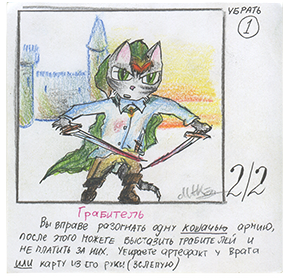 УБРАТЬ
1
2/2
Грабитель
Вы вправе разогнать одну кошачью армию,
после этого можете выставить грабителей и
не платить за них. Убираете артефакт у врага
или карту из его руки (вслепую)